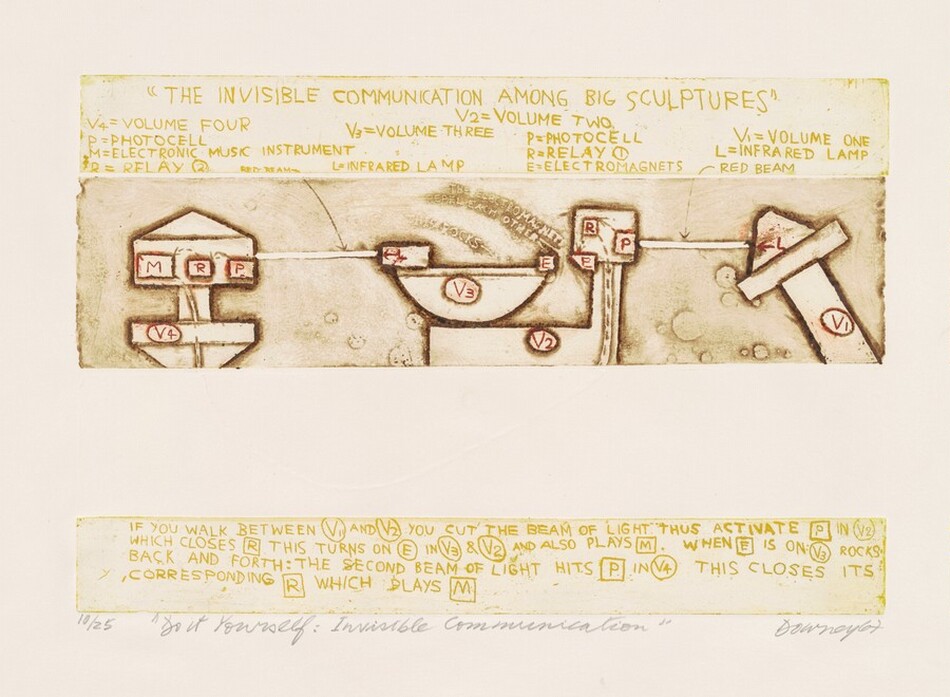 "THE INVISIBLE COMMUNICATION AMONG BIG SCULPTURES"
V4=VOLUME FOUR
P=PHOTOCELL
M=ELECTRONIC MUSIC INSTRUMENT
R=RELAY ②
RED BEAM
V3=VOLUME THREE
L=INFRARED LAMP
V2=VOLUME TWO
P=PHOTOCELL
R=RELAY ①
E=ELECTROMAGNETS
V1=VOLUME ONE
L=INFRARED LAMP
RED BEAM
THE ELECTROMAGNETS
REPEL EACH OTHER
ROCKS
M R P
V4
L
V3
E
R
P
E
V2
L
V1
IF YOU WALK BETWEEN V1 AND V2 YOU CUT THE BEAM OF LIGHT THUS ACTIVATE P IN V2
WHICH CLOSES R THIS TURNS ON E IN V3 & V2 AND ALSO PLAYS M. WHEN E IS ON: V3 ROCKS
BACK AND FORTH: THE SECOND BEAM OF LIGHT HITS P IN V4 THIS CLOSES ITS
CORRESPONDING R WHICH PLAYS M
10/25 "Do it Yourself: Invisible Communication" Downey 67